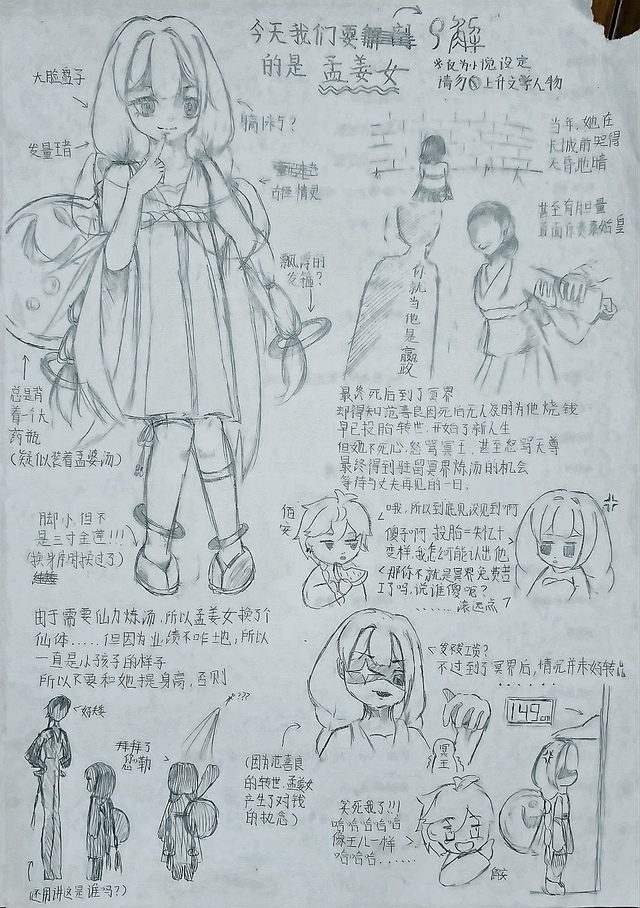 今天我们要解
的是 孟姜女
*仅为小说设定
请勿上升文学人物
大脸盘子
发量王者
古怪精灵
飘浮的
发箍?
当年,她在
长城前哭得
天昏地暗
甚至有胆量
直面斥责秦始皇
你就当他是嬴政
总是背
着一个大
药瓶
(疑似装着孟婆汤)
脚小,但不
是三寸金莲!!!
(换身体时换过了)
最终死后到了冥界
却得知范喜良因死后无人及时为他烧钱
早已投胎转世,开始了新人生
但她不死心,怒骂冥王,甚至怒骂天尊
最终得到驻留冥界炼汤的机会
等待与丈夫再见的一日.
哦,所以到底见没见到啊
傻子啊,投胎=失忆+
变样,我怎么可能认出他
那你不就是冥界免费苦
工了吗,说谁傻呢?
......滚远点
由于需要仙力炼汤,所以孟姜女换了个
仙体......但因为业绩不咋地,所以
一直是小孩子的样子
所以不要和她提身高,否则
不过到了冥界后,情况并未好转
......
好矮
拜拜了
您勒
???
(还用讲这是谁吗?)
(因为范喜良
的转世,孟姜女
产生了对钱
的执念)
冥王
149cm
笑死我了!!!
哈哈哈哈哈
哈哈哈......